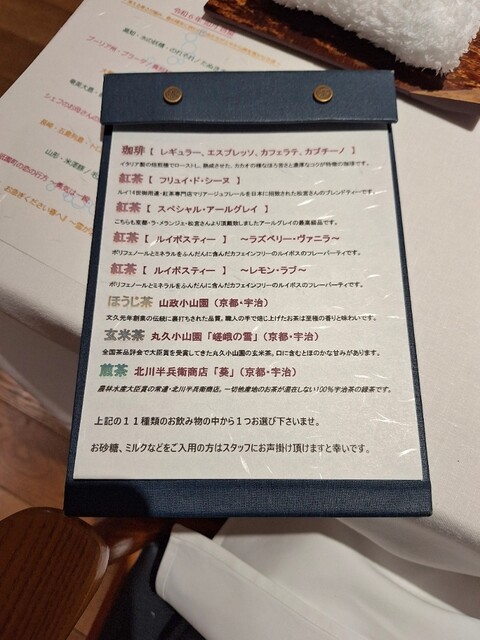 令和6年
珈琲 【 レギュラー、エスプレッソ、カフェラテ、カプチーノ 】
イタリア製の焙煎機でローストし、熟成させた、カカオの様なほろ苦さと濃厚なコクが特徴の珈琲です。
紅茶 【 フリュイ・ド・シーヌ 】
ルイ14世御用達・紅茶専門店マリアージュフレールを日本に招致された松宮さんのブレンドティーです。
紅茶 【 スペシャル・アールグレイ 】
こちらも京都・ラ・メランジェ・松宮さんより頂戴致しましたアールグレイの最高級品です。
紅茶 【 ルイボスティー 】 ～ラズベリー・ヴァニラ～
ポリフェノールとミネラルをふんだんに含んだカフェインフリーのルイボスのフレーバーティです。
紅茶 【 ルイボスティー 】 ～レモン・ラブ～
ポリフェノールとミネラルをふんだんに含んだカフェインフリーのルイボスのフレーバーティです。
ほうじ茶 山政小山園（京都・宇治）
文久元年創業の伝統に裏打ちされた品質。職人の手で焙じ上げたお茶は至極の香りと味わいです。
玄米茶 丸久小山園「嵯峨の雪」（京都・宇治）
全国茶品評会で大臣賞を受賞してきた丸久小山園の玄米茶。口に含むとほのかな甘みがあります。
煎茶 北川半兵衛商店「葵」（京都・宇治）
農林水産大臣賞の常連・北川半兵衛商店。一切他産地のお茶が混在しない100％宇治茶の緑茶です。
上記の１１種類のお飲み物の中から１つお選び下さいませ。
お砂糖、ミルクなどをご入用の方はスタッフにお声掛け頂けますと幸いです。